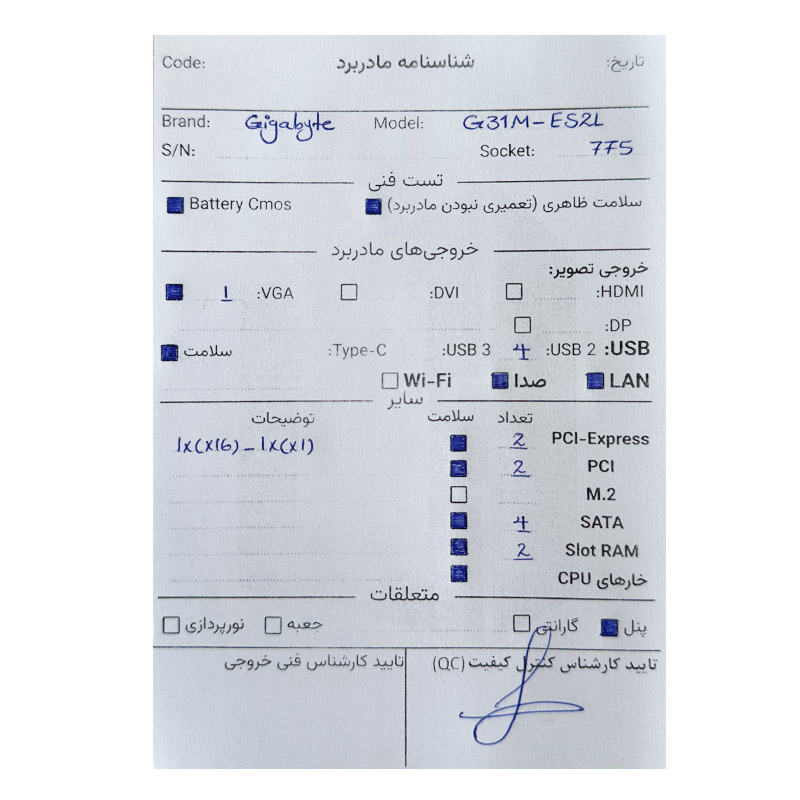 تاریخ: شناسنامه مادربرد Code:
Brand: Gigabyte Model: G31M-ES2L
S/N: Socket: 775
تست فنی
سلامت ظاهری (تعمیری نبودن مادربرد) Battery Cmos
خروجی‌های مادربرد
خروجی تصویر:
HDMI: DVI: VGA: 1
DP:
USB: USB 2: 4 USB 3: Type-C: سلامت
LAN صدا Wi-Fi
سایر
تعداد سلامت توضیحات
PCI-Express 2 1x(x16) - 1x(x1)
PCI 2
M.2
SATA 4
Slot RAM 2
خارهای CPU
متعلقات
پنل گارانتی جعبه نورپردازی
تایید کارشناس کنترل کیفیت (QC) تایید کارشناس فنی خروجی